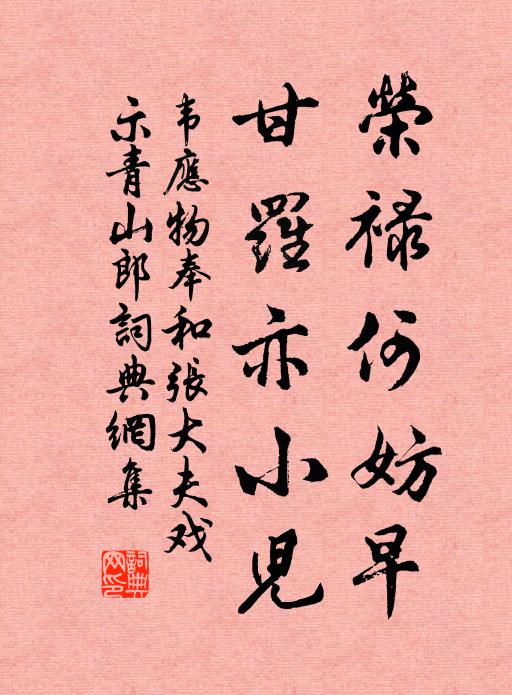 榮祿何妨早
甘羅亦小兒
韦應物奉和張大夫戏
示青山郎詞典網集
詞典
网印